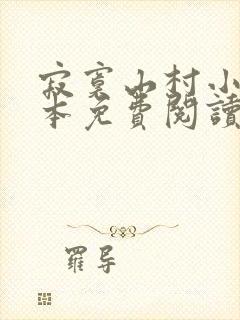 寂寞山村小
本免費閱讀
羅导